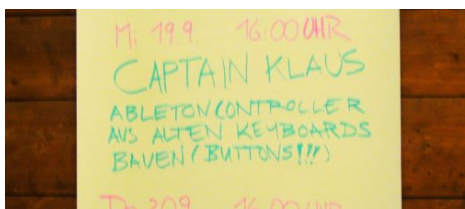 Mi 19.9. 16.00 UHR
CAPTAIN KLAUS
ABLETON CONTROLLER
AUS ALTEN KEYBOARDS
BAUEN (BUTTONS!!!)
Do 20.9. 16.00 UHR